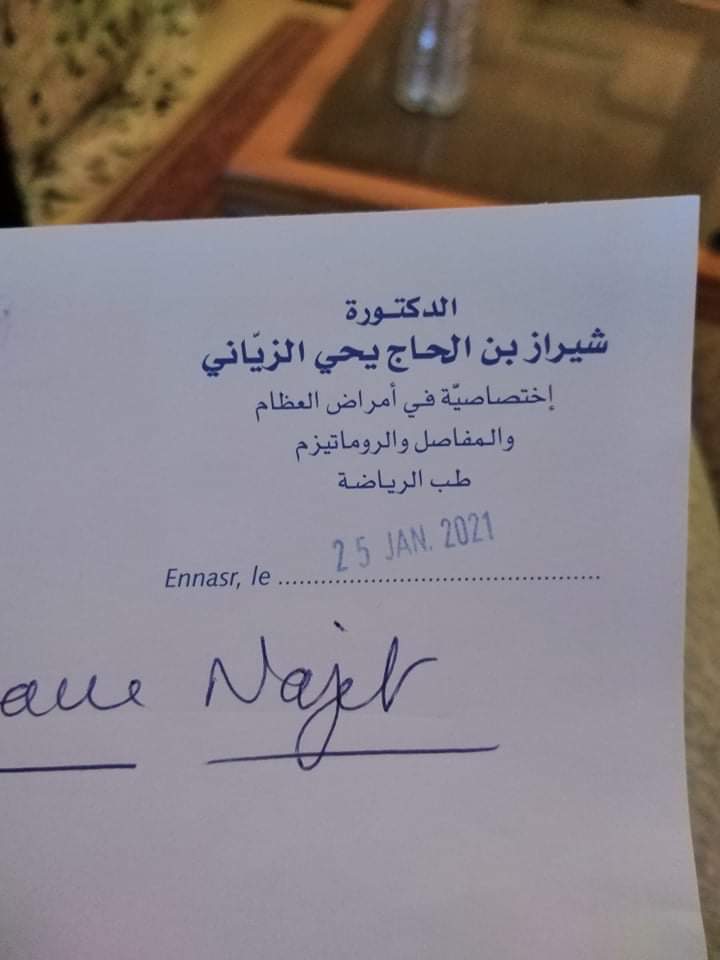 الدكتورة
شيراز بن الحاج يحي الزيّاني
إختصاصيّة في أمراض العظام
والمفاصل والروماتيزم
طب الرياضة
25 JAN. 2021
Ennasr, le ..............................................
Najet